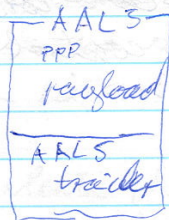 AAL5
PPP
payload
AAL5
trailer